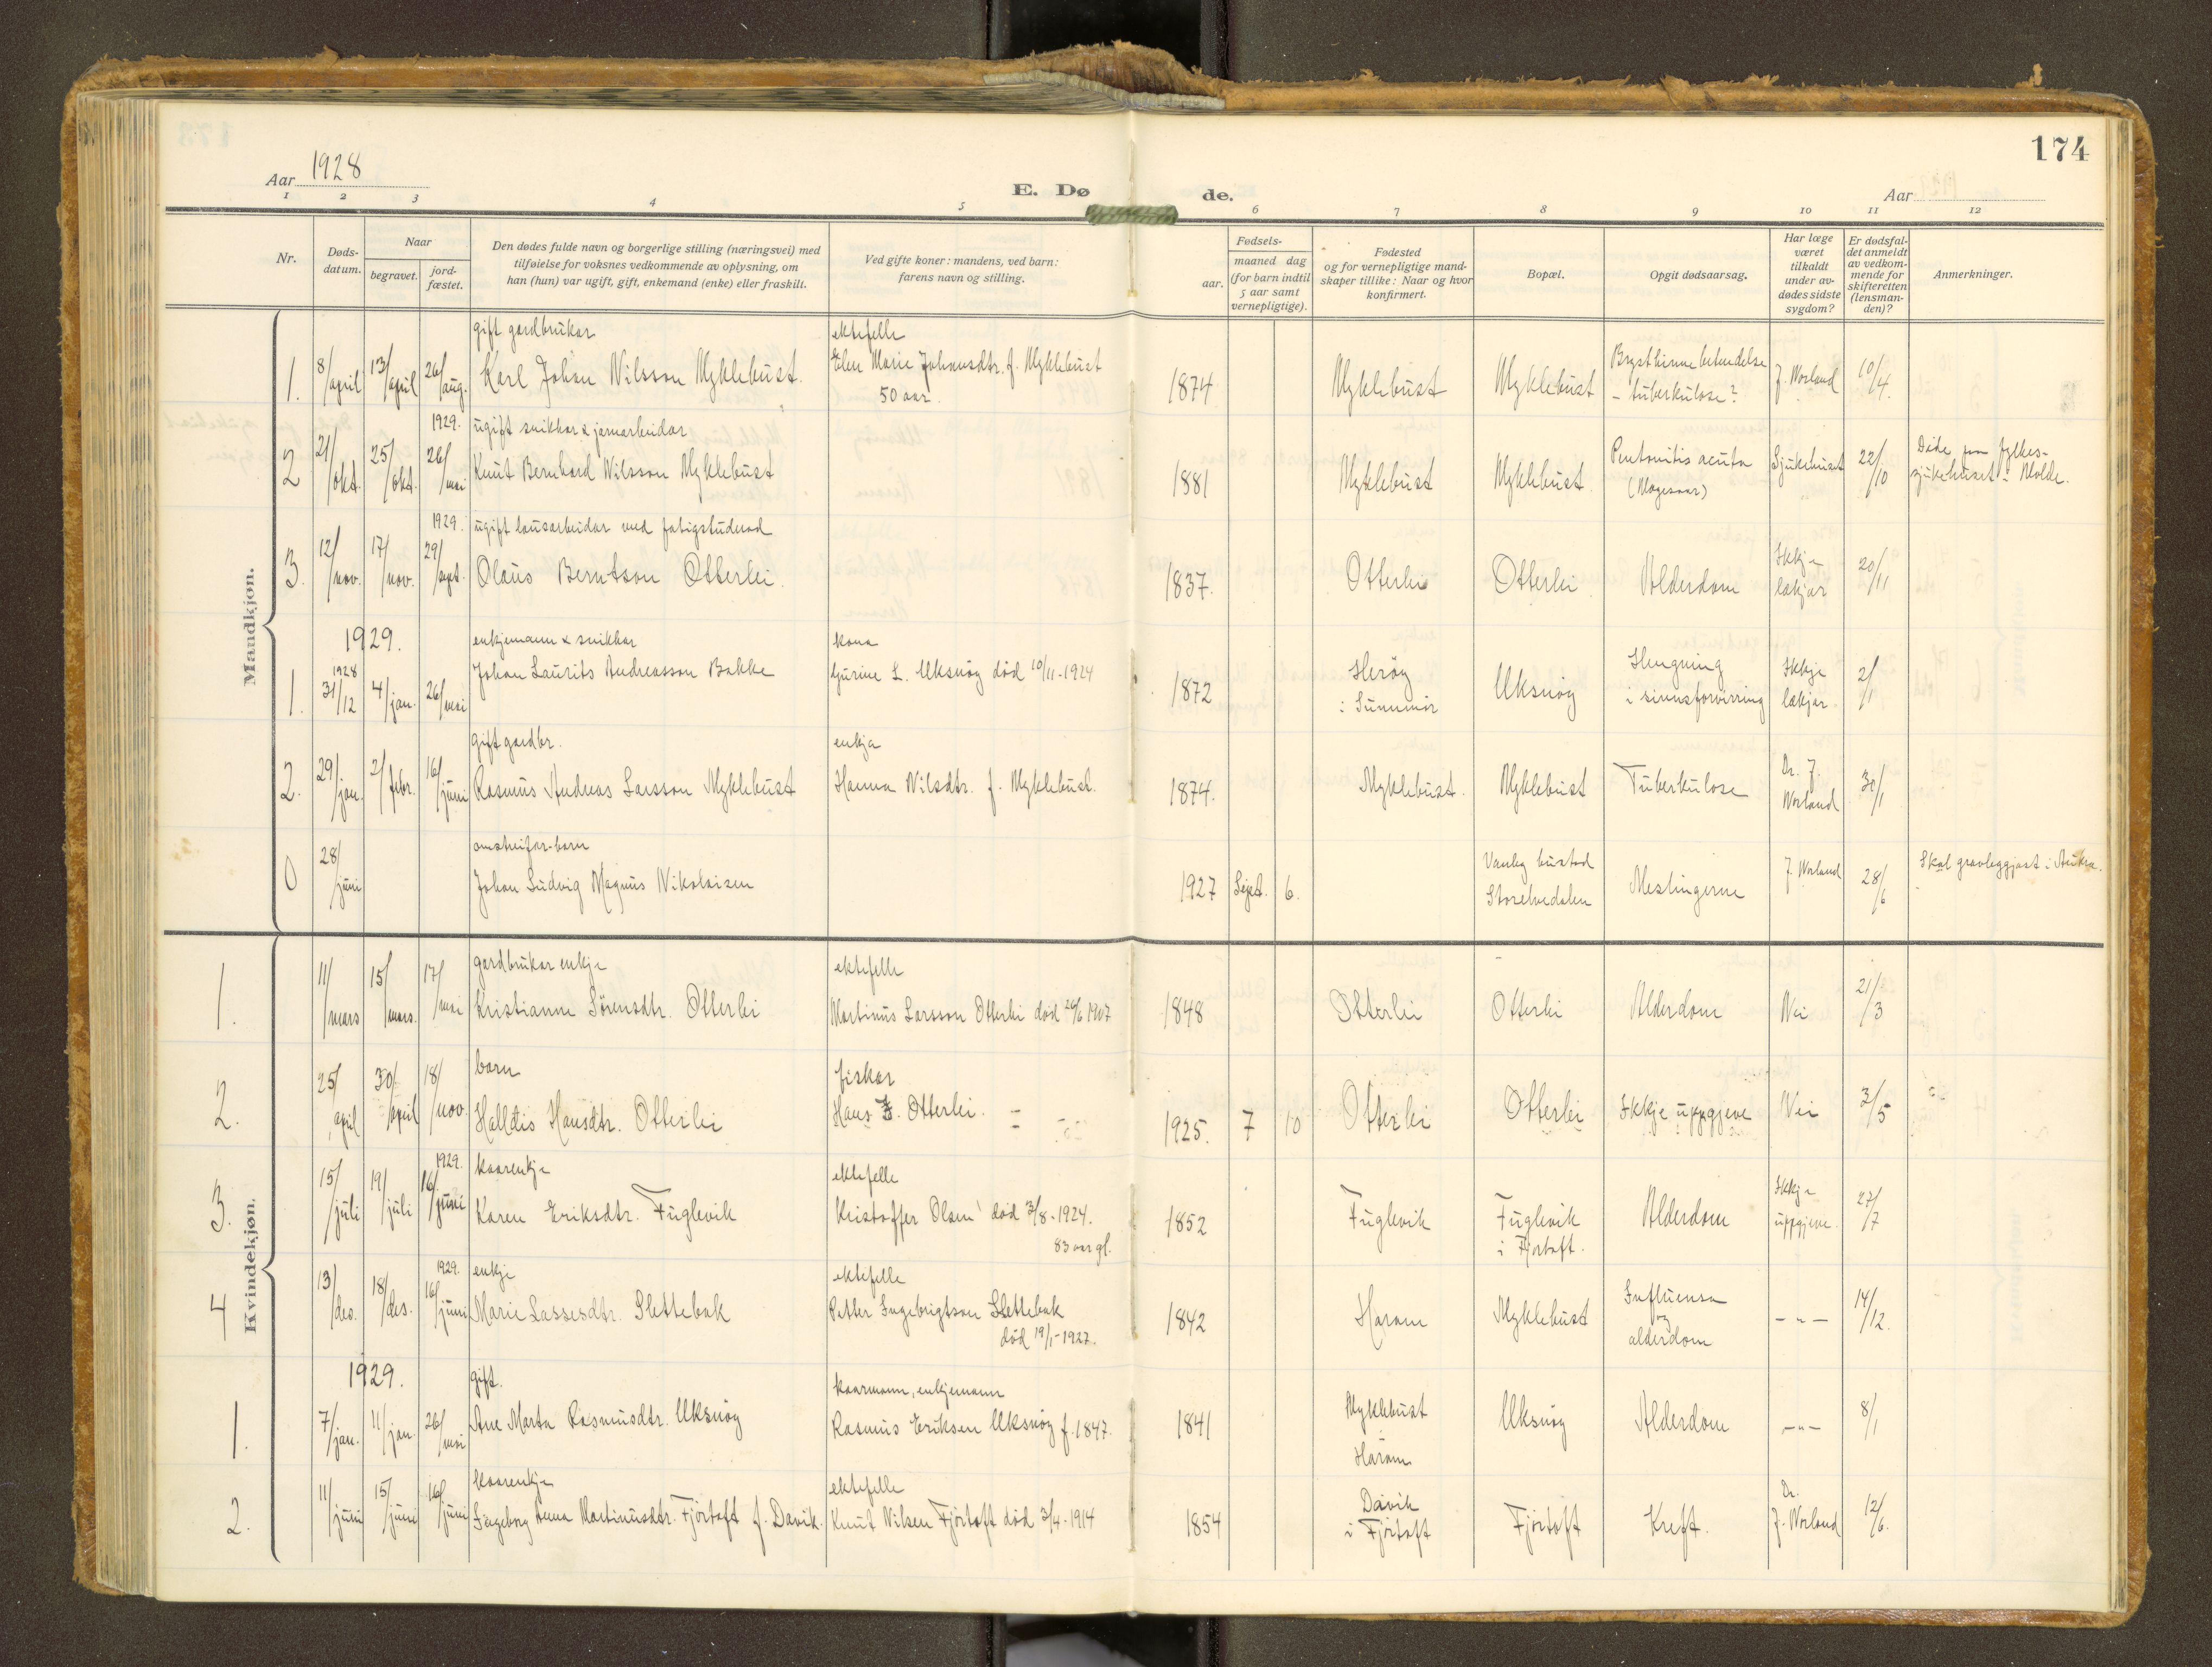 174
Aar 1928
E. Døde.
Aar
1 2 3 4 5 6 7 8 9 10 11 12
Nr.
Døds-
datum.
Naar
begravet.
jord-
fæstet.
Den dødes fulde navn og borgerlige stilling (næringsvei) med
tilføielse for voksnes vedkommende av oplysning, om
han (hun) var ugift, gift, enkemand (enke) eller fraskilt.
Ved gifte koner: mandens, ved barn:
farens navn og stilling.
Fødsels-
aar.
maaned dag
(for barn indtil
5 aar samt
vernepligtige).
Fødested
og for vernepligtige mand-
skaper tillike: Naar og hvor
konfirmert.
Bopæl.
Opgit dødsaarsag.
Har læge
været
tilkaldt
under av-
dødes sidste
sygdom?
Er dødsfal-
det anmeldt
av vedkom-
mende for
skifteretten
(lensman-
den)?
Anmerkninger.
Mandkjøn.
gift gardbrukar ektefelle
1. 8/april 13/april 26/aug. Karl Johan Nilsson Myklebust. Elen Marie Johansdtr. f. Myklebust 1874 Myklebust Myklebust Brysthinnebetendelse J. Norland 10/4.
50 aar. - tuberkulose?
1929. ugift snikkar & jarnarbeidar
2 21/okt. 25/okt. 26/mai Knut Bernhard Nilsson Myklebust 1881 Myklebust Myklebust. acuta Sjukehuset 22/10 Døde paa fylkes-
(Magesaar) sjukehuset i Molde.
1929. ugift lausarbeidar med fatigstudnad
3. 12/nov. 17/nov. 29/sept. Olaus Berntson Otterlei. 1837. Otterlei Otterlei Alderdom Ikkje 20/11
lækjar
1929. enkjemann & snikkar kona
1928
1. 31/12 4/jan. 26/mai Johan Laurits Andreasson Bakke Gurine L. Uksnøy död 10/11-1924 1872 Herøy Uksnøy Hengning Ikkje 2/1
i Sunnmør i sinnsforvirring lækjar.
gift gardbr. enkja
2. 29/jan. 2/febr. 16/juni Rasmus Andreas Larsson Myklebust Hanna Nilsdtr. f. Myklebust. 1874. Myklebust. Myklebust Tuberkulose Dr. J. 30/1
Norland
omstreifar-barn
0 28/juni Johan Ludvig Magnus Nikolaisen 1927 Sept. 6. Vanleg bustad Meslingerne J. Norland 28/6 Skal gravleggjast i Aukra.
Storelvedalen
Kvindekjøn.
gardbrukar enkje ektefelle
1. 11/mars 15/mars. 17/mai Kristianne Sörensdtr. Otterlei Martinus Larsson Otterlei död 24/6 1907 1848 Otterlei Otterlei Alderdom Nei 21/3
barn fiskar
2. 25/april 30/april 18/nov. Halldis Hansdtr. Otterlei Hans J. Otterlei. 1925. 7 10 Otterlei Otterlei Ikkje uppgjeve Nei 3/5
1929. kaarenkje ektefelle
3. 15/juli 19/juli 16/juni Karen Eriksdtr. Fuglevik Kristoffer Olsen död 3/8-1924. 1852 Fuglevik Fuglevik Alderdom Ikkje 27/7
83 aar gl. i Fjortoft. uppgjeve.
1929. enkje ektefelle
4 13/des. 18/des. 16/juni Marie Lassesdtr. Slettebak Petter Ingebrigtson Slettebak 1842 Haram Myklebust Influensa -"- 14/12.
död 19/1-1927. og
alderdom
1929. gift. kaarmann, enkjemann
1. 7/jan. 11/jan. 26/mai Ane Marta Rasmusdtr. Uksnøy Rasmus Eriksen Uksnøy f. 1847. 1841 Myklebust Uksnøy Alderdom -"- 8/1
Haram
kaarenkje ektefelle
2. 11/juni 15/juni 16/juni Ingeborg Anna Martinusdtr. Fjörtoft f. Davik. Knut Nilsen Fjörtoft död 3/4-1914 1854 Davik Fjörtoft Kreft. Dr. 12/6.
i Fjörtoft J. Norland